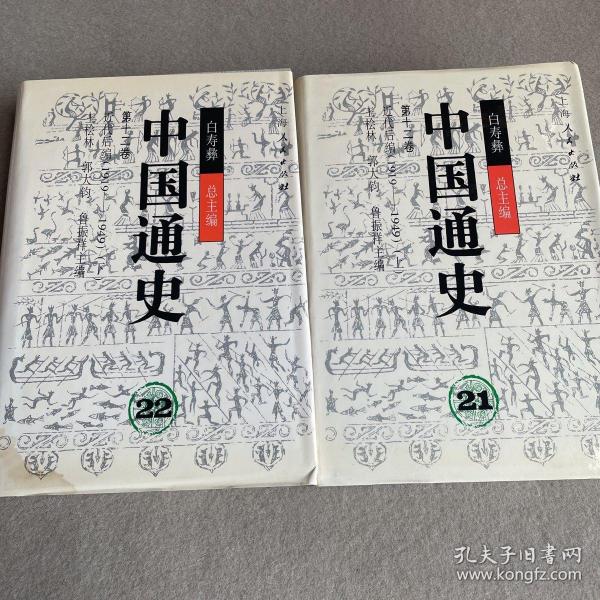 白寿彝 总主编
中国通史
第十二卷
近代后编(1919—1949)(下)
王桧林 郭大钧 鲁振祥主编
22
上海人民出版社
白寿彝 总主编
中国通史
第十二卷
近代后编(1919—1949)(上)
王桧林 郭大钧 鲁振祥主编
21
孔夫子旧书网
www.kongfz.com